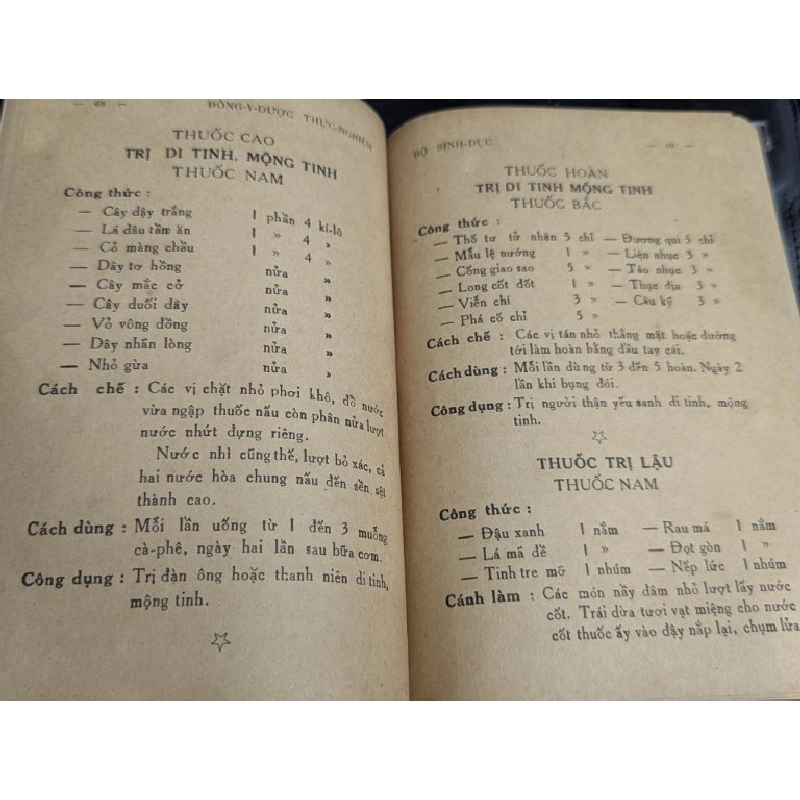 — 68 — ĐÔNG-Y-DƯỢC THỰC-NGHIỆM
THUỐC CAO
TRỊ DI TINH, MỘNG TINH
THUỐC NAM
Công thức :
— Cây dậy trắng 1 phần 4 kí-lô
— Lá dâu tằm ăn 1 » 4 »
— Cỏ màng chầu 1 » 4 »
— Dây tơ hồng nửa »
— Cây mắc cở nửa »
— Cây duối dây nửa »
— Vỏ vông đồng nửa »
— Dây nhản lòng nửa »
— Nhỏ gừa nửa »
Cách chế : Các vị chặt nhỏ phơi khô, đổ nước
vừa ngập thuốc nấu còn phân nửa lượt
nước nhứt dựng riêng.
Nước nhì cũng thế, lượt bỏ xác, cả
hai nước hòa chung nấu đến sền, sệt
thành cao.
Cách dùng : Mỗi lần uống từ 1 đến 3 muỗng
cà-phê, ngày hai lần sau bữa cơm.
Công dụng : Trị đàn ông hoặc thanh niên di tinh,
mộng tinh.
BỘ SINH-DỤC — 69 —
THUỐC HOÀN
TRỊ DI TINH MỘNG TINH
THUỐC BẮC
Công thức :
— Thố tư tử nhân 5 chỉ — Đương qui 5 chỉ
— Mẫu lệ nướng 1 » — Liện nhục 3 »
— Cống giao sao 5 » — Táo nhục 3 »
— Long cốt đốt 1 » — Thục địa 3 »
— Viễn chí 3 » — Câu kỷ 3 »
— Phá cố chỉ 5 »
Cách chế : Các vị tán nhỏ thắng mật hoặc đường
tới làm hoàn bằng đầu tay cái.
Cách dùng : Mỗi lần dùng từ 3 đến 5 hoàn. Ngày 2
lần khi bụng đói.
Công dụng : Trị người thận yếu sanh di tinh, mộng
tinh.
THUỐC TRỊ LẬU
THUỐC NAM
Công thức :
— Đậu xanh 1 nắm — Rau má 1 nắm
— Lá mã đề 1 » — Đọt gòn 1 »
— Tinh tre mỡ 1 nhúm — Nếp lức 1 nhúm
Cánh làm : Các món nầy đâm nhỏ lượt lấy nước
cốt. Trái dừa tươi vạt miệng cho nước
cốt thuốc ấy vào đậy nắp lại, chụm lửa